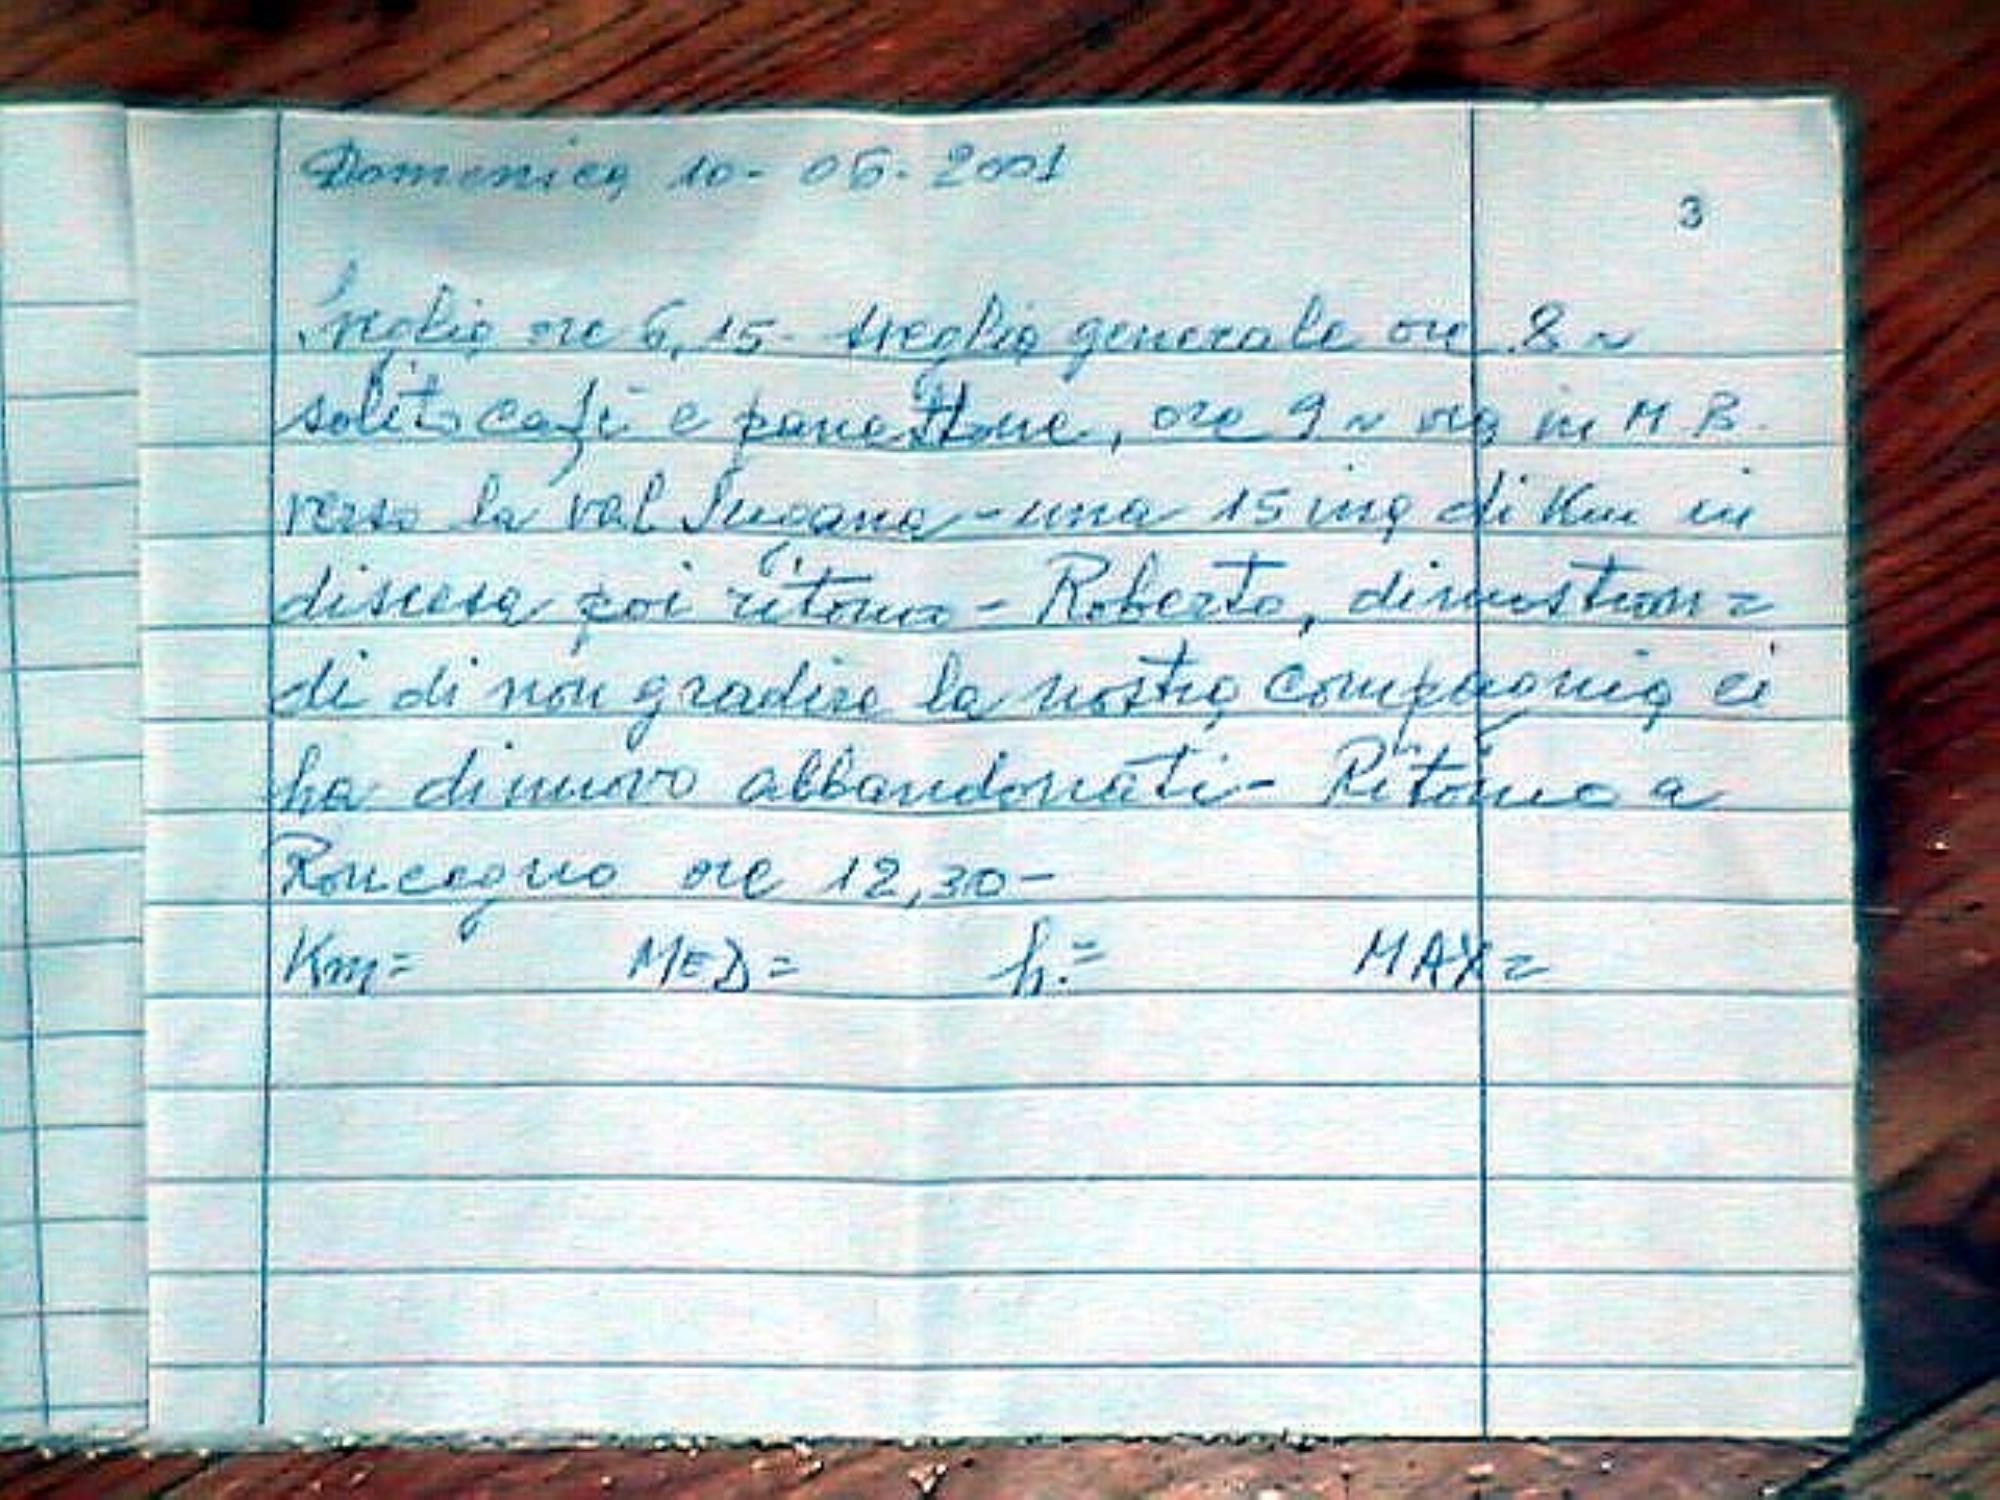 Domenica 10-06-2001
3
Sveglia ore 6,15- sveglia generale ore 8 ~
solito cafè e panettone, ore 9 ~ via in M B.
verso la val Sugana - una 15ina di Km in
discesa poi ritorno - Roberto, dimostran=
di di non gradire la nostra compagnia ci
ha di nuovo abbandonati - Ritorno a
Roncegno ore 12,30-
Km= MED= h.= MAX=